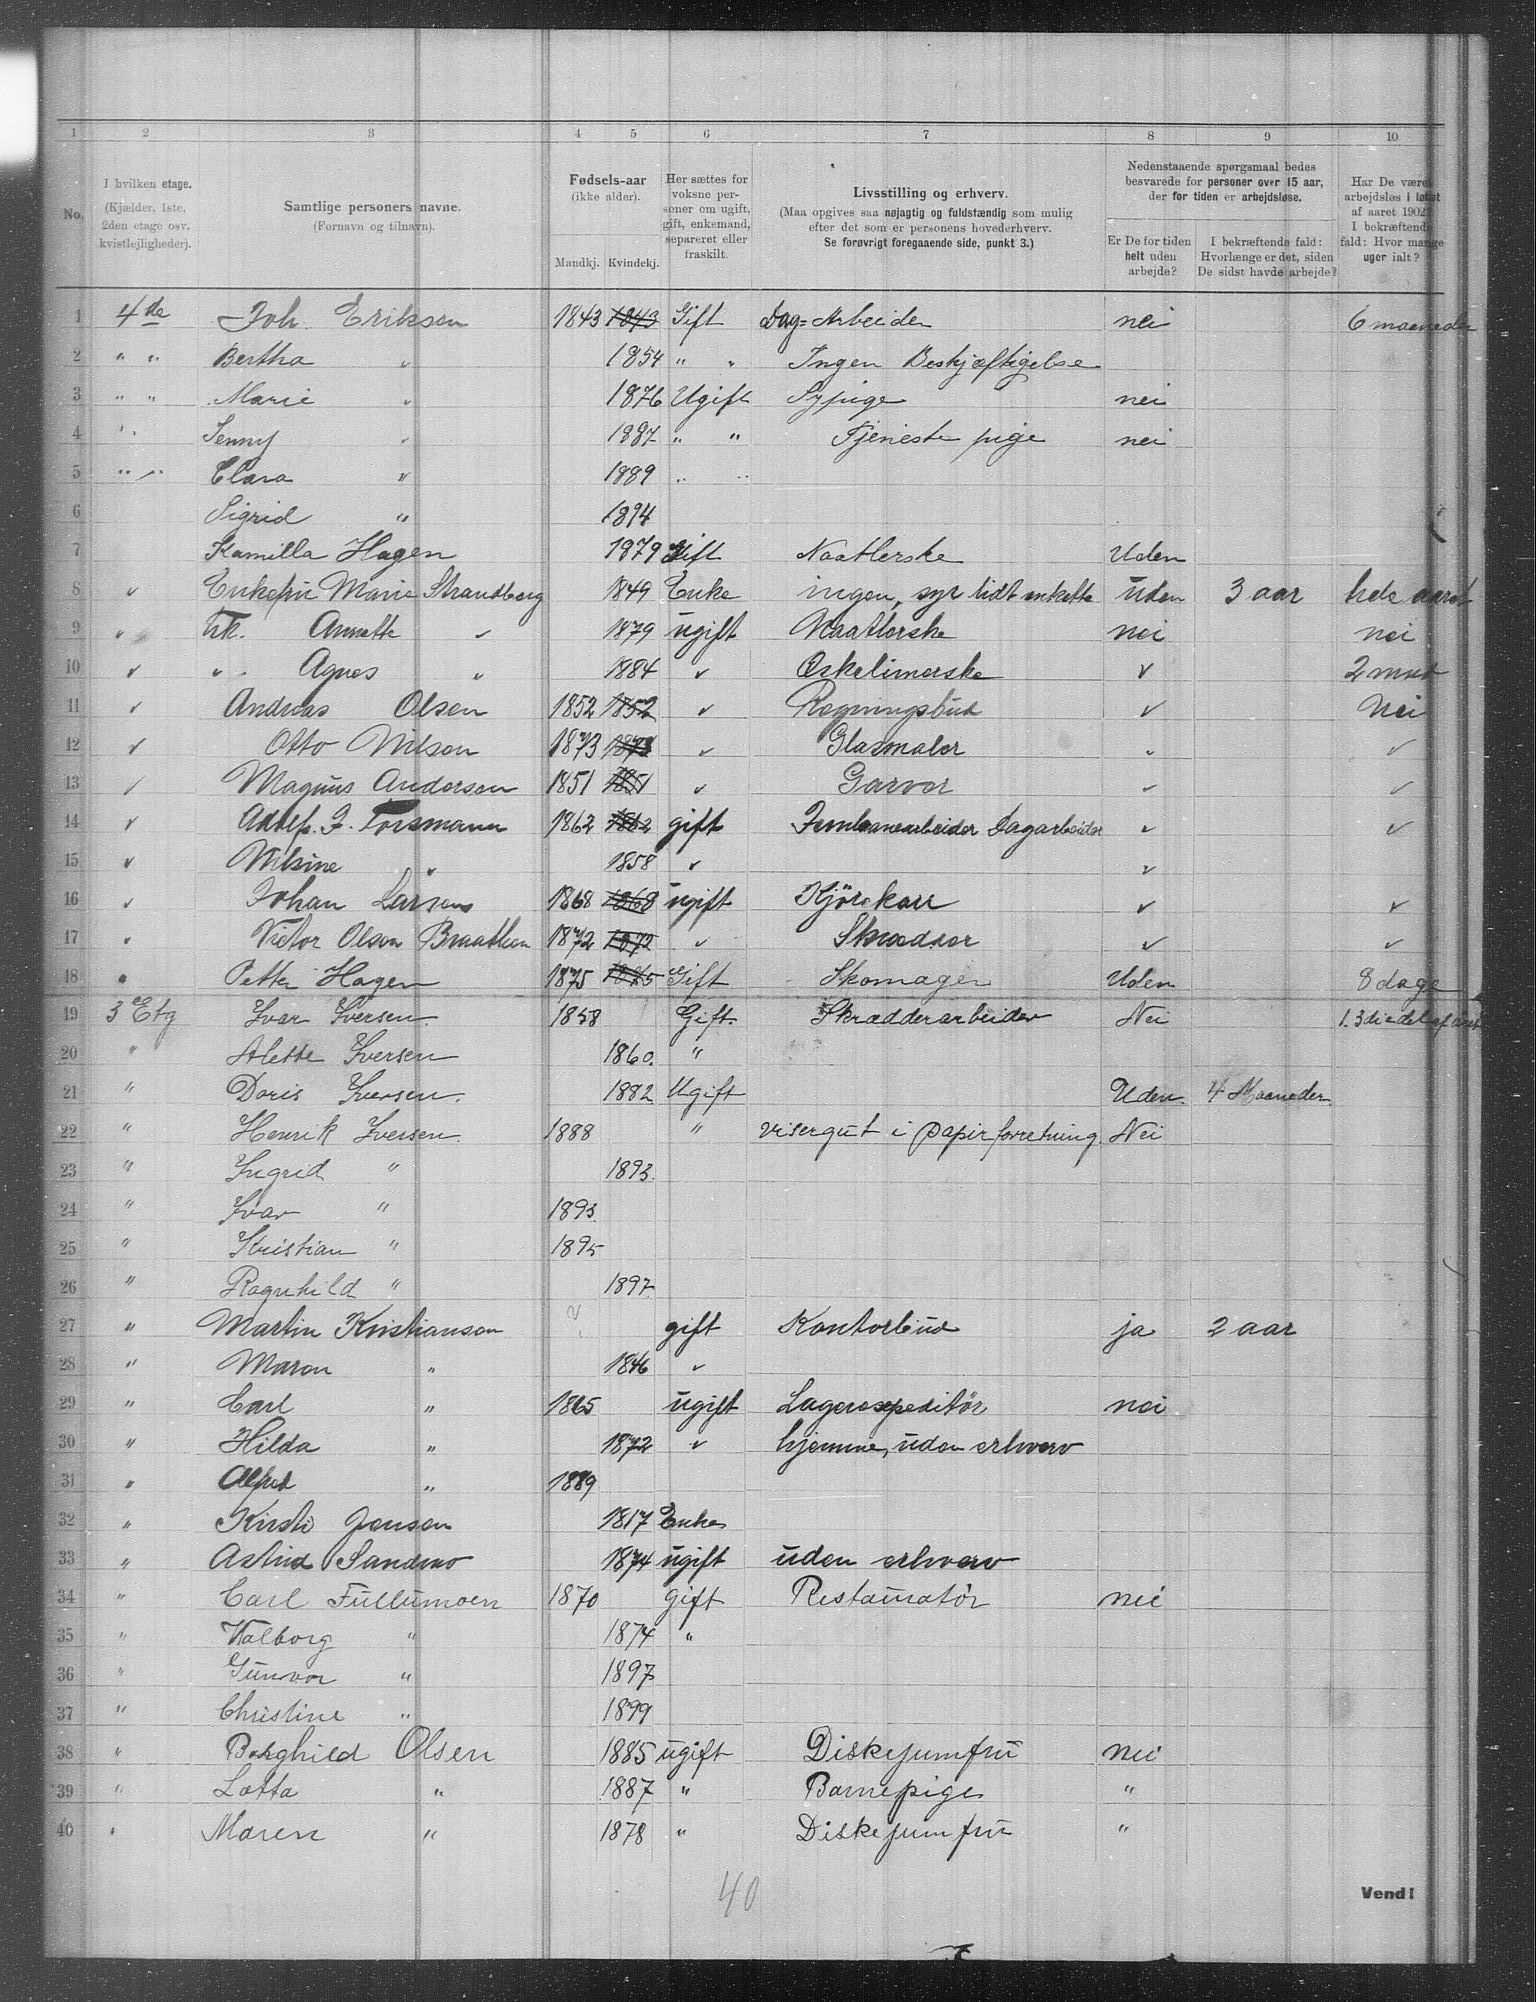 1 2 3 4 5 6 7 8 9 10
No. I hvilken etage. (Kjælder, 1ste, 2den etage osv. kvistlejligheder). Samtlige personers navne. (Fornavn og tilnavn). Fødsels-aar (ikke alder). Mandkj. Kvindekj. Her sættes for voksne personer om ugift, gift, enkemand, separeret eller fraskilt. Livsstilling og erhverv. (Maa opgives saa nøjagtig og fuldstændig som mulig efter det som er personens hovederhverv. Se forøvrigt foregaaende side, punkt 3.) Nedenstaaende spørgsmaal bedes besvarede for personer over 15 aar, der for tiden er arbejdsløse. Er De for tiden helt uden arbejde? I bekræftende fald: Hvorlænge er det, siden De sidst havde arbejde? Har De været arbejdsløs i løbet af aaret 1902? I bekræftende fald: Hvor mange uger ialt?
1 4de Joh. Eriksen 1843 1843 Gift Dag=Arbeider nei 6 maaneder
2 " " Bertha " 1854 " " Ingen Beskjæftigelse
3 " " Marie " 1876 Ugift Sypige nei
4 " Jenny " 1887 " " Tjeneste pige nei
5 " " Clara " 1889 " "
6 Sigrid " 1894
7 Kamilla Hagen 1879 Gift Naatlerske Uden
8 " Enkefru Marie Strandberg 1849 Enke ingen, syr lidt enkelte uden 3 aar hele aaret
9 " Frk. Annette " 1879 ugift Naatlerske nei nei
10 " " Agnes " 1884 " Eskelimerske " 2 mnd
11 " Andreas Olsen 1852 1852 " Regningsbud " Nei
12 " Otto Nilsen 1873 1873 " Glasmaler " "
13 " Magnus Andersen 1851 1851 " Garver " "
14 " Adolf. F. Forsmann 1862 1862 gift Jernbanearbeider Dagarbeider " "
15 " Nilsine " 1858 " "
16 " Johan Larsen 1868 1868 ugift Kjörekarl " "
17 " Victor Olsen Braathen 1872 1872 " Skrædder " "
18 " Petter Hagen 1875 1875 Gift Skomager Uden 8 dage
19 3 Etg Ivar Iversen 1858 Gift. Skrædderarbeider Nei 1. 3die del af aaret
20 " Alette Iversen 1860. "
21 " Doris Iversen. 1882 Ugift Uden. 4 Maaneder
22 " Henrik Iversen 1888 " visergut i Papirforretning. Nei
23 " Ingrid " 1893.
24 " Ivar " 1893.
25 " Kristian " 1895
26 " Ragnhild " 1897
27 " Martin Kristiansen gift Kontorbud ja 2 aar
28 " Maren " 1846 "
29 " Carl " 1865 ugift Lagerexpeditør nei
30 " Hilda " 1872 " hjemme, uden erhverv
31 " Alfred " 1889
32 " Kirsti Jensen 1817 Enke
33 " Astrid Sandmo 1874 ugift uden erhverv
34 " Carl Fullumoen 1870 gift Restauratør nei
35 " Valborg " 1874 "
36 " Gunvor " 1897
37 " Christine " 1899
38 " Borghild Olsen 1885 ugift Diskejumfru nei
39 " Lotta " 1887 " Barnepige "
40 " Maren " 1878 " Diskejumfru "
40
Vend!